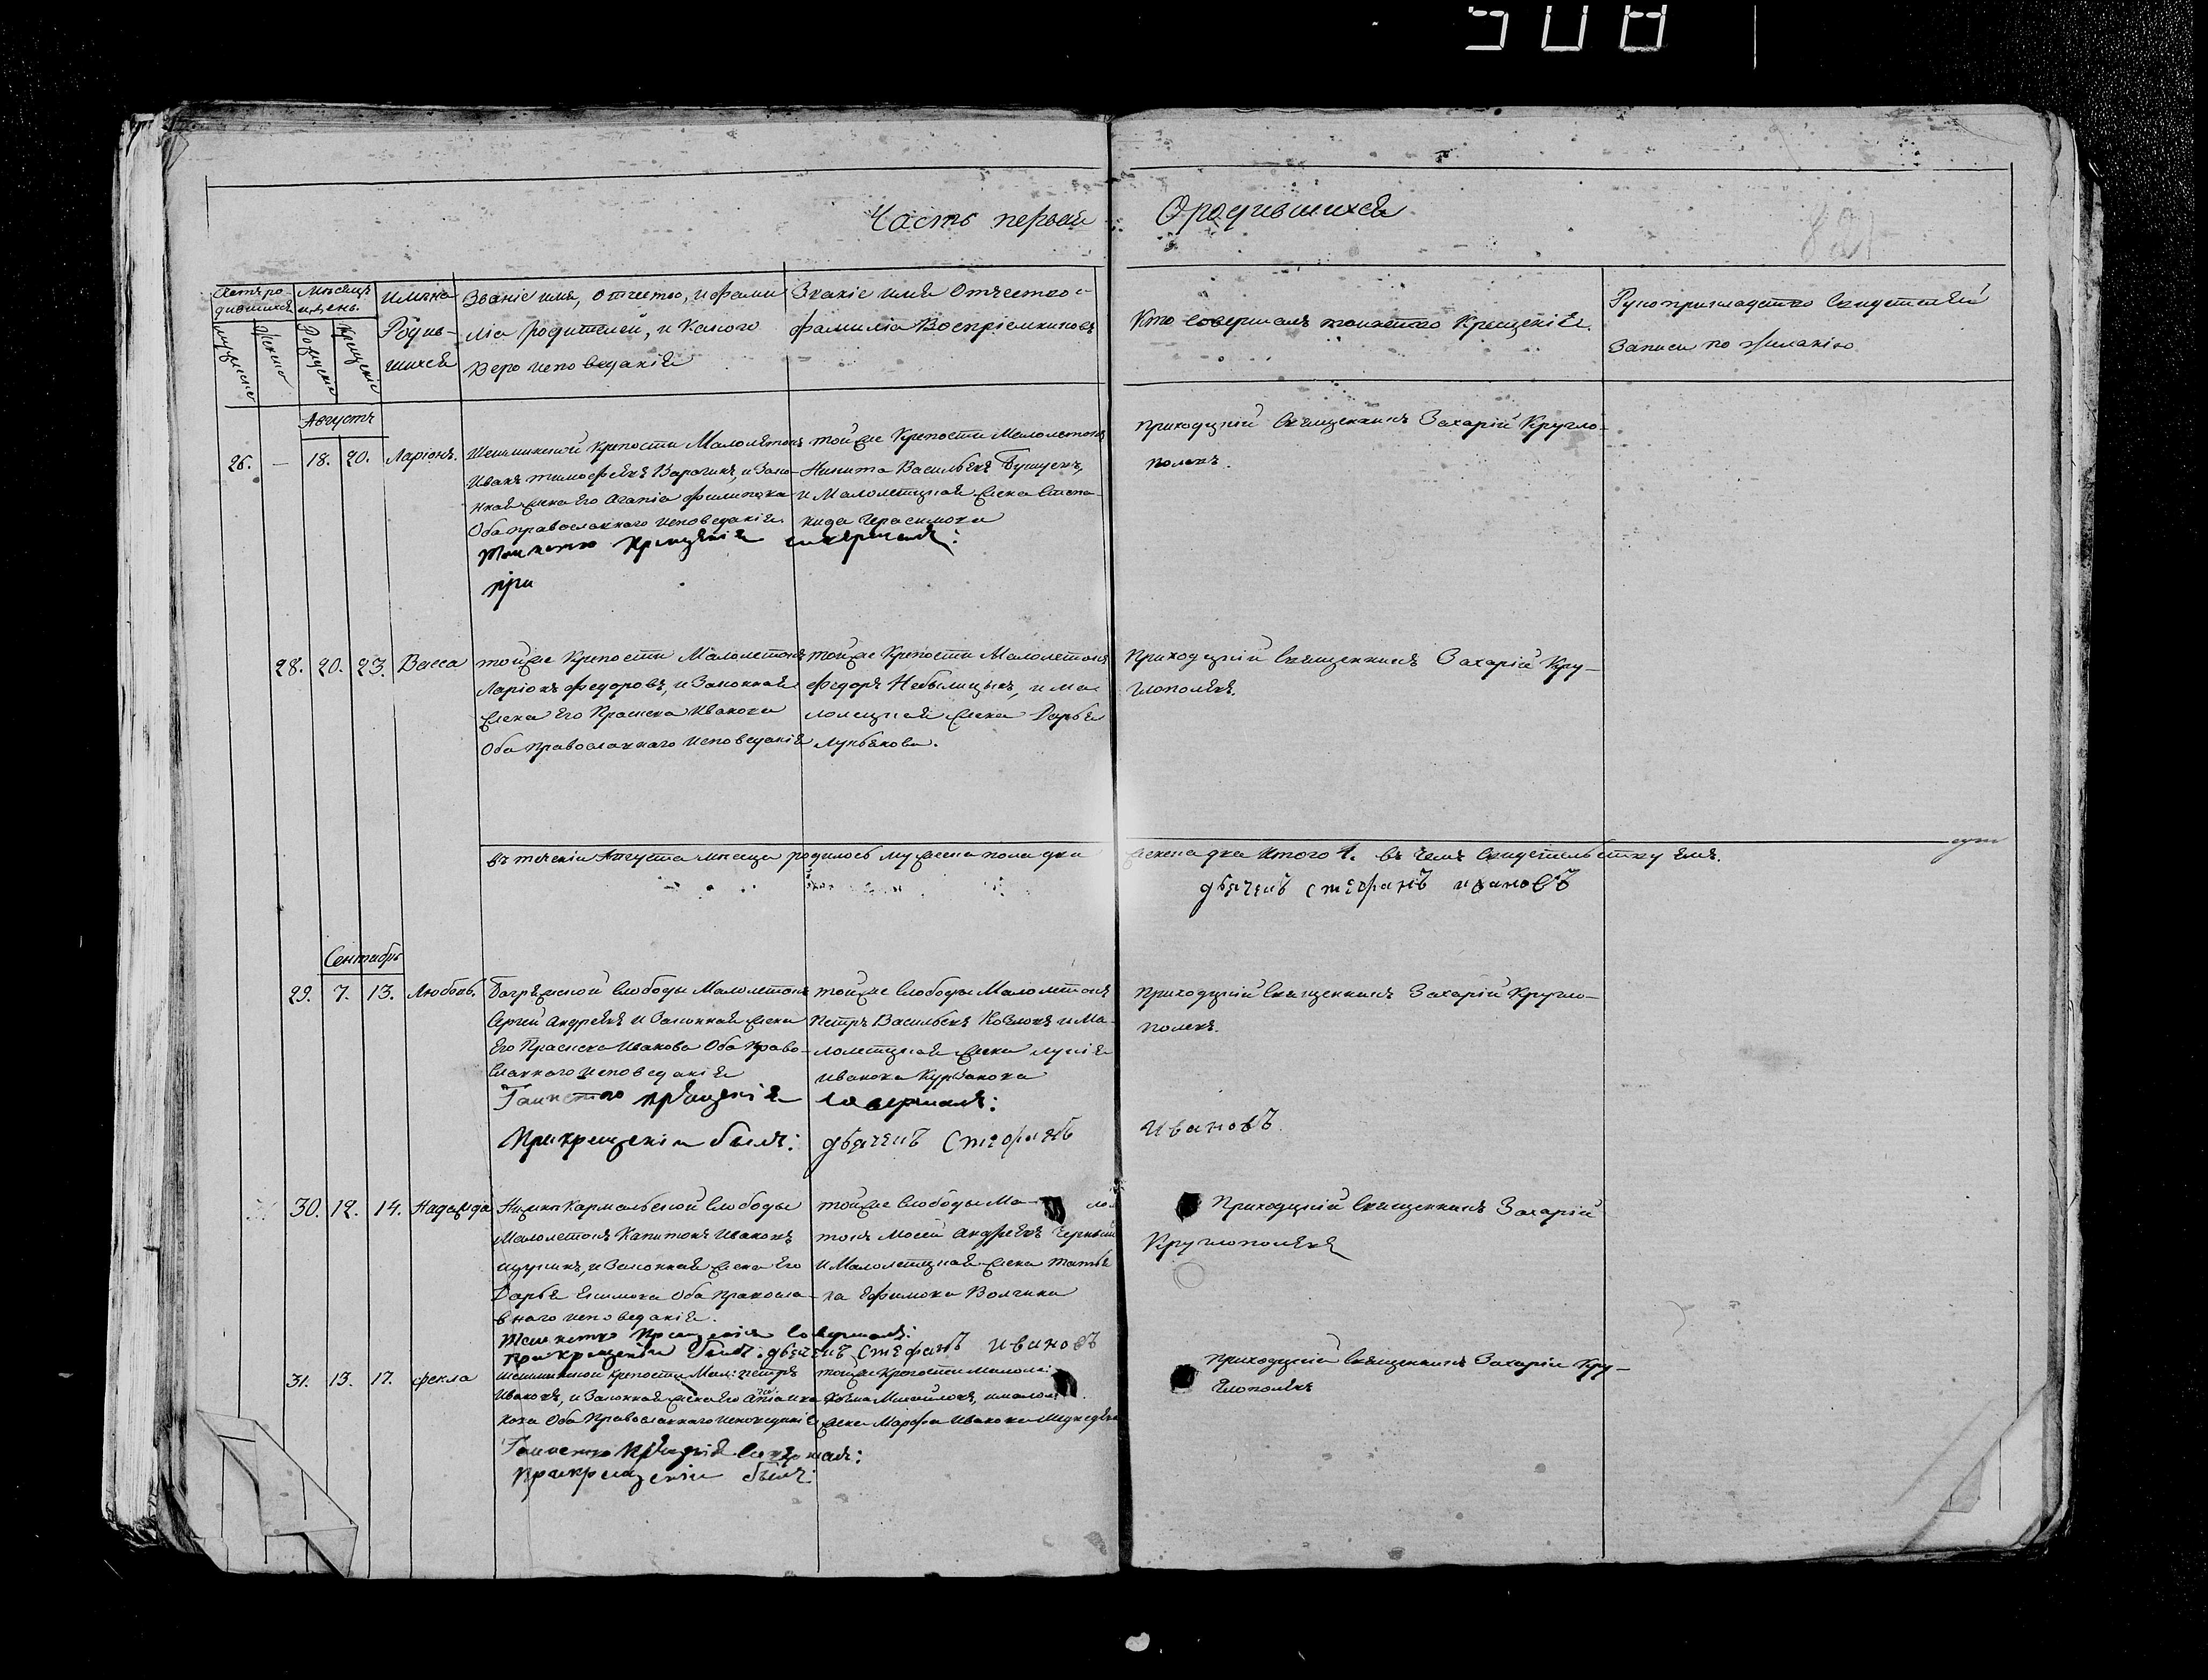 508
Часть первая О родившихся
82
Счетъ ро-
дившихся
Мѣсяцъ
и день.
Имяна
Родив-
шихся
мужеска
Женска
Рожденія
Крещенія
Званіе имя, отчество, и фами
лія родителей, и Какого
Вероисповеданія
Званіе имя Отчество и
фамилія Воспріемниковъ
Кто совершалъ таинство Крещенія.
Рукоприкладство Свидетелей
Записи по желанію
Августъ
26. — 18. 20. Ларіонъ.
Шешминской крепости Малолетокъ
Иванъ тимофѣевъ, и Зако-
нная жена Его Агапія филипова
Оба православнаго исповеданія.
таинство Крещенія совершалъ:
при
той же Крепости Малолетокъ
Никита Васильевъ
и Малолетцкая жена Степа-
нида Герасимова
приходцкій Священникъ Захарій Кругло-
полевъ.
28. 20. 23. Васса
той же Крепости Малолетокъ
Ларіонъ федоровъ, и Законная
жена Его Праскева Иванова
Оба православнаго исповеданія
той же Крепости Малолетокъ
федоръ Небылицынъ, и ма
лолецкая жена Дарья
Лукьянова.
Приходцкій Священникъ Захарій Кру-
глополевъ.
въ теченіи Августа месяца родилось мужеска пола два женска два Итого 4. въ чемъ Свидетельствуемъ.
дьячекъ стефанъ ивановъ
Сентябрь
29. 7. 13. Любовь.
Багряжской Слободы Малолетокъ
Сергей Андрѣевъ и Законная жена
Его Праскева Иванова Оба право-
славнаго исповеданія
Таинство крещенія совершалъ:
При крещеніи былъ: дьячекъ Стефанъ Ивановъ.
той же Слободы Малолетокъ
Петръ Васильевъ Козловъ и Ма-
лолетцкая жена лукія
иванова Курзанова
Приходцкій Священникъ Захарій Кругло-
полевъ.
30. 12. 14. Надежда
Кармальской Слободы
Малолетокъ Капитонъ Ивановъ
и Законная жена Его
Дарья Екимова Оба правосла-
внаго исповеданія.
таинство Крещенія Совершалъ:
при крещеніи былъ: дьячекъ стефанъ ивановъ
той же Слободы Ма- ло
токъ Мосей Андрѣевъ Черный
и Малолетцкая жена татья
на Ефимова Волчика
Приходцкій Священникъ Захарій
Круглополевъ
31. 13. 17. фекла
Шешминской крепости Мал: петръ
Ивановъ, и Законная жена Его
Оба Православнаго исповеданія
Таинство Крещенія Совершалъ:
при крещеніи былъ:
той же Крепости малол:
Козма Михайловъ, и малол:
жена Марфа Иванова
приходцкій Священникъ Захарій Кру-
глополевъ